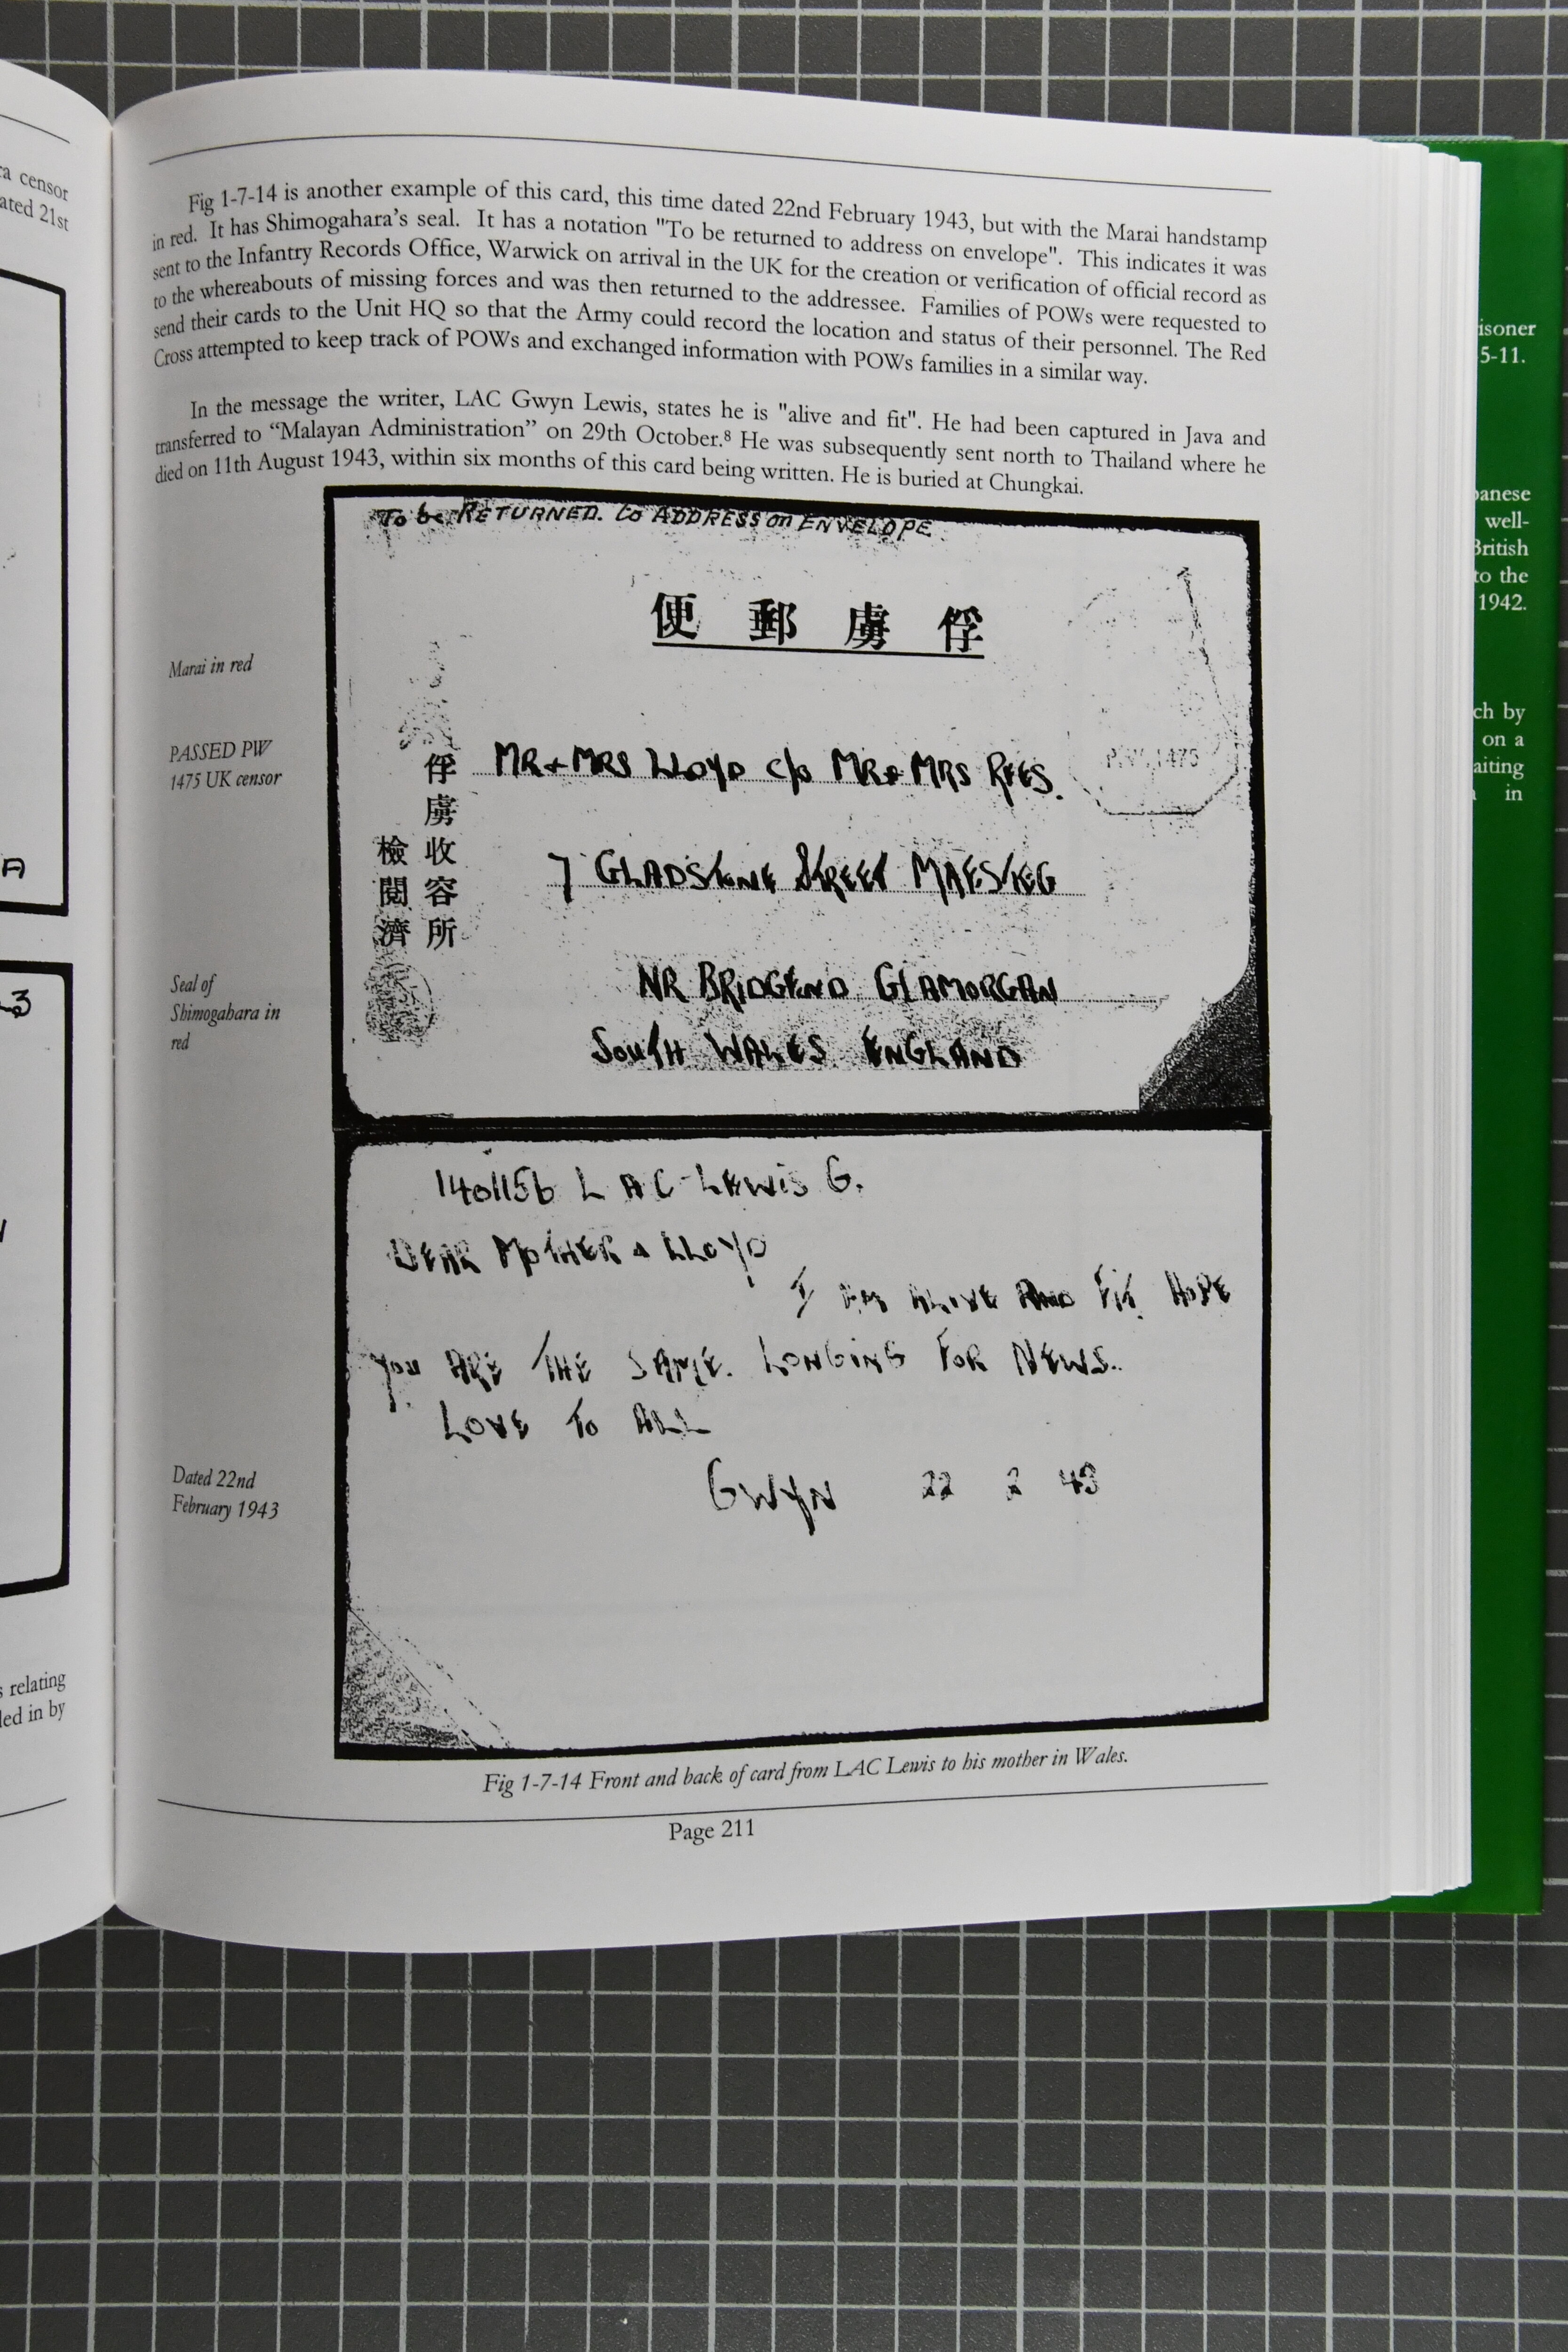 ra censor
ated 21st
A
3
s relating
led in by
Fig 1-7-14 is another example of this card, this time dated 22nd February 1943, but with the Marai handstamp
in red. It has Shimogahara's seal. It has a notation "To be returned to address on envelope". This indicates it was
sent to the Infantry Records Office, Warwick on arrival in the UK for the creation or verification of official record as
to the whereabouts of missing forces and was then returned to the addressee. Families of POWs were requested to
send their cards to the Unit HQ so that the Army could record the location and status of their personnel. The Red
Cross attempted to keep track of POWs and exchanged information with POWs families in a similar way.
In the message the writer, LAC Gwyn Lewis, states he is "alive and fit". He had been captured in Java and
transferred to “Malayan Administration” on 29th October.⁸ He was subsequently sent north to Thailand where he
died on 11th August 1943, within six months of this card being written. He is buried at Chungkai.
To be RETURNED. to ADDRESS on ENVELOPE
便 郵 虜 俘
Marai in red
PASSED PW
1475 UK censor
P.W. 1475
俘虜收容所
檢閲濟
MR + MRS LLOYD c/o MR + MRS REES.
7 GLADSTONE STREET MAESTEG
NR BRIDGEND GLAMORGAN
SOUTH WALES ENGLAND
Seal of
Shimogahara in
red
1401156 L A C LEWIS G.
DEAR MOTHER & LLOYD
I AM ALIVE AND FIT HOPE
YOU ARE THE SAME. LONGING FOR NEWS.
LOVE TO ALL
GWYN 22 2 43
Dated 22nd
February 1943
Fig 1-7-14 Front and back of card from LAC Lewis to his mother in Wales.
Page 211
isoner
5-11.
panese
well-
British
to the
1942.
ch by
on a
aiting
in